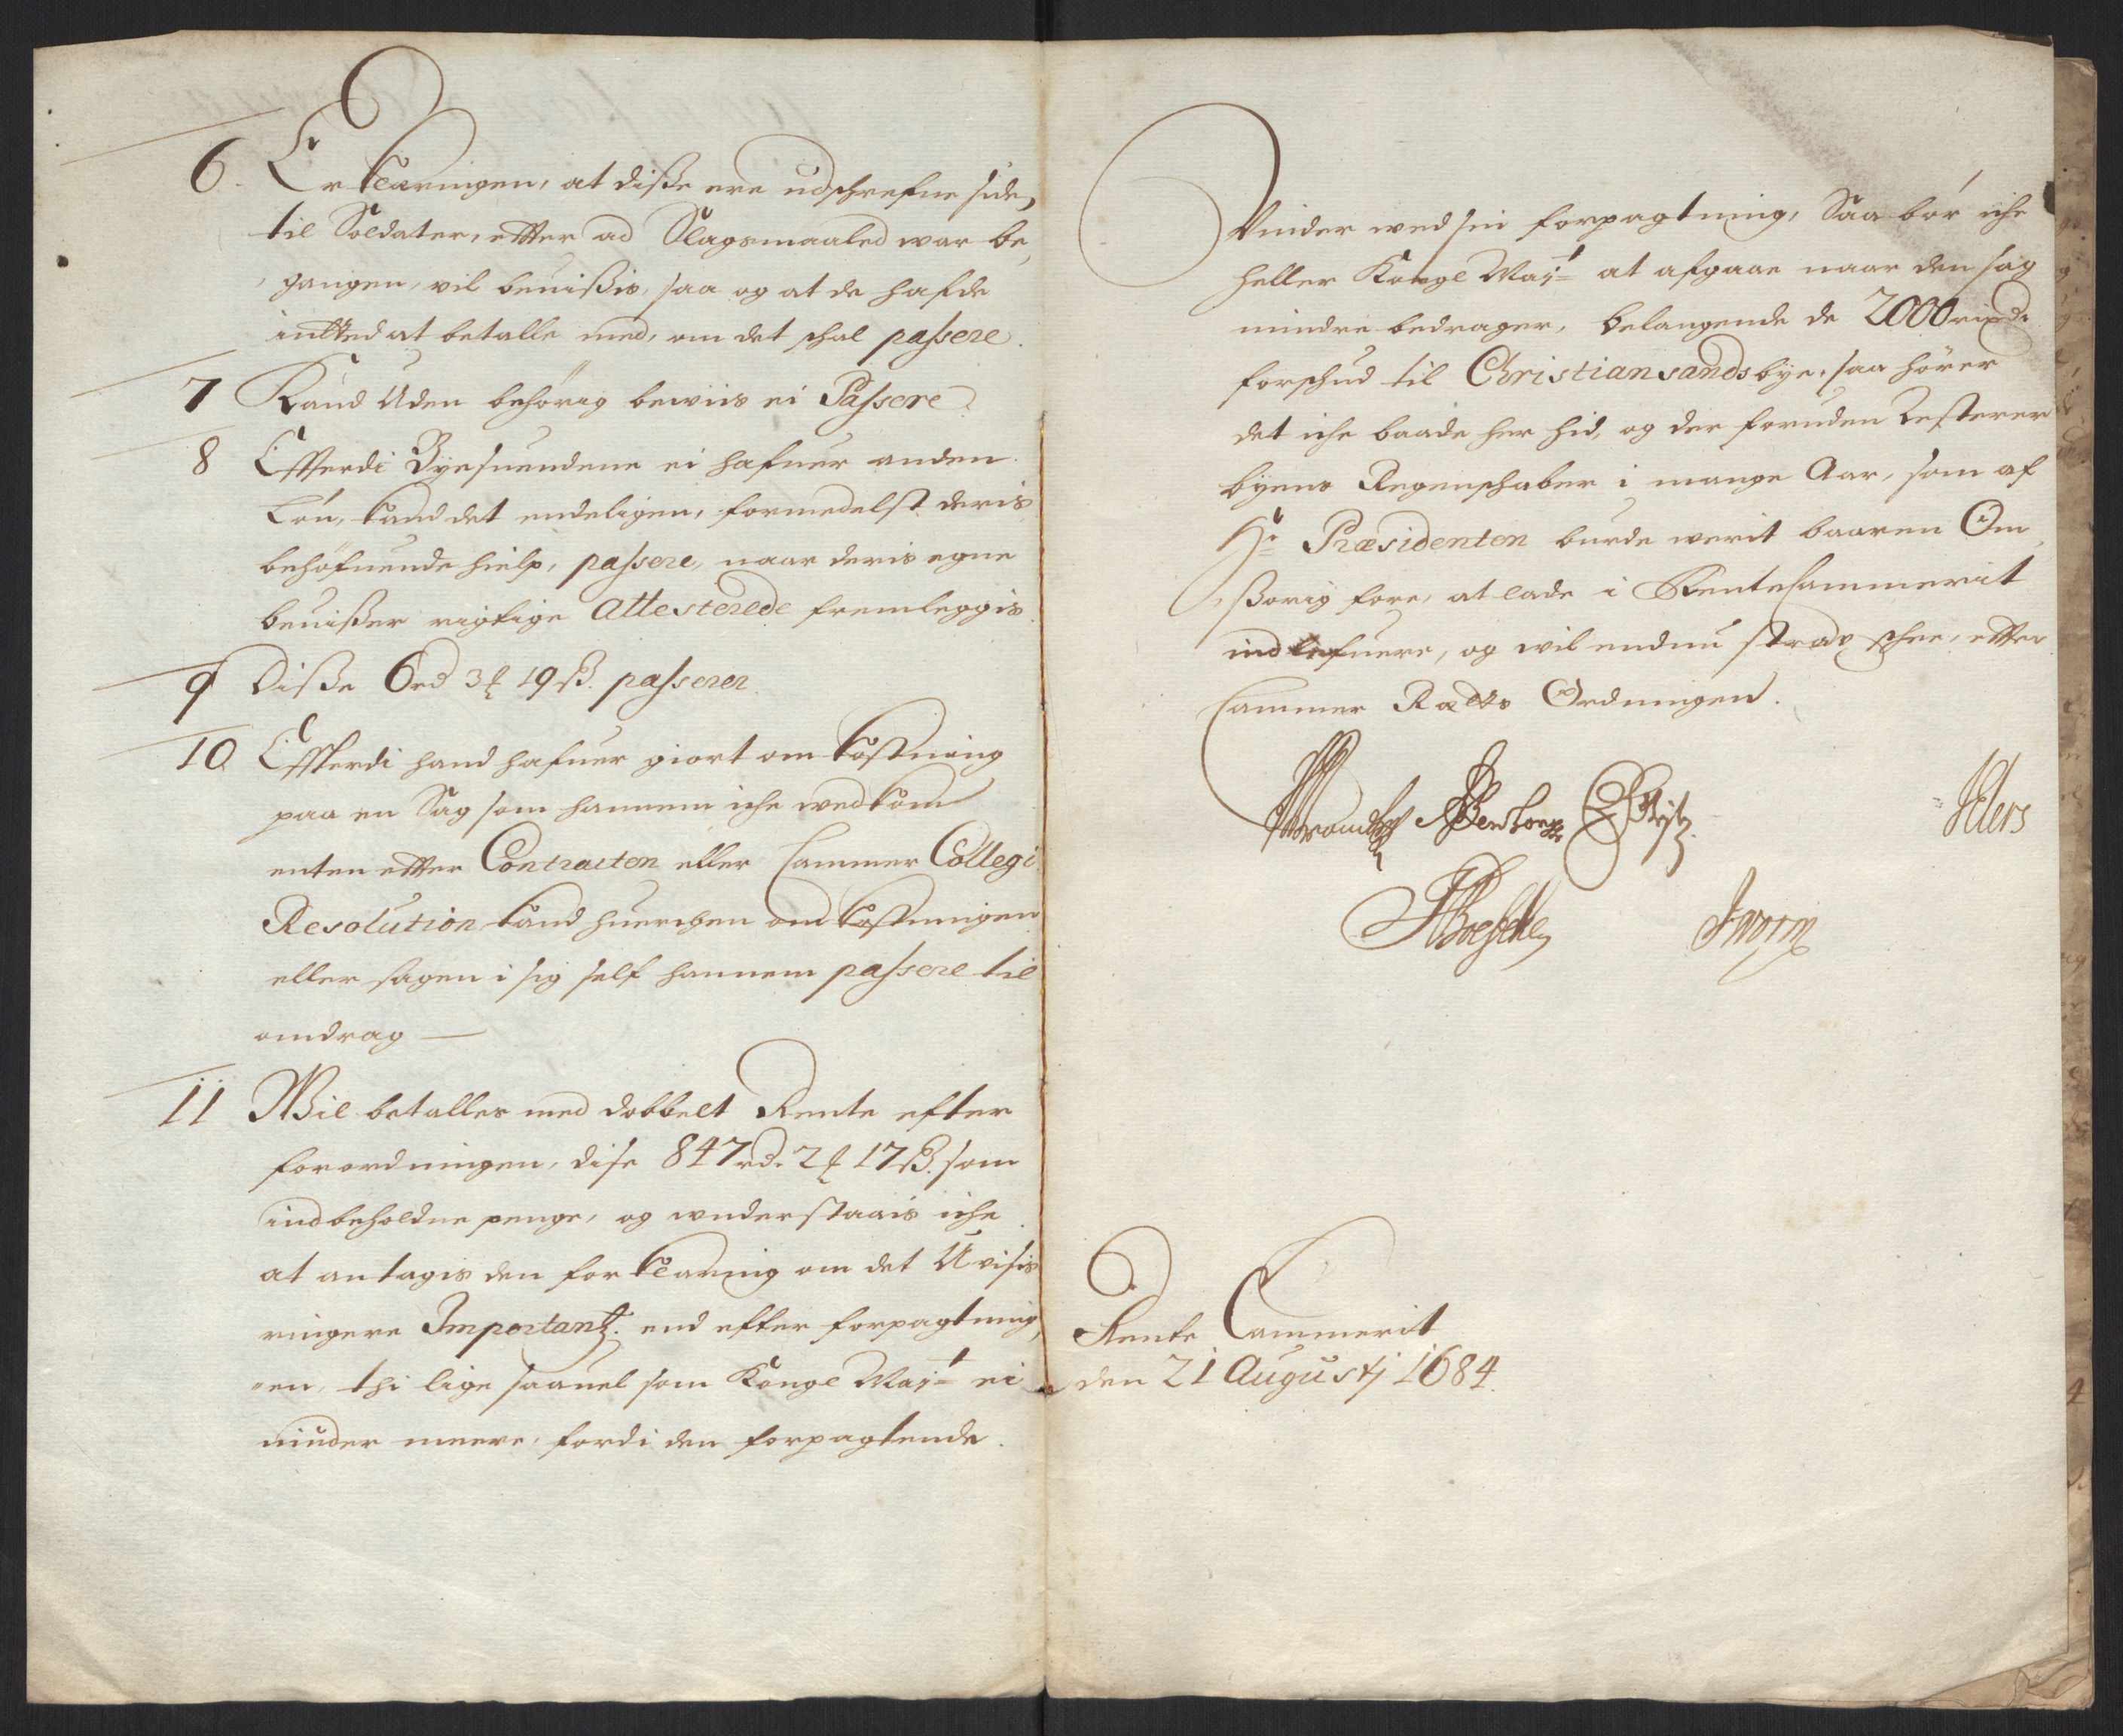 6. Erklæringen, at disse ere udschrefne side,
til Soldater, etter ad Slagsmaaled war be,
gangen, vil beuissis, saa og at de hafde
intted at betalle med, om det schal passere.
7 Kand Uden behörig bewiis ei Passere.
8 Efferdi Byesuendene ei hafuer anden
Lön, kand det endeligen, formedelst deris
behöfuende hielp, passere, naar deris egne
beuisser rigtige attesterede fremleggis
9 Disse 6 rd 3 ƶ 19 ß. passerer.
10 Efferdi hand hafuer giort omkostning
paa en Sag som hannem iche wedkom
enten etter Contracten eller Cammer Collegi
Resolution kand huerchen omkostningen
eller sagen i sig self hannem passere til
omdrag —
11 Wil betalles med dobbelt Rente efter
forordningen, dise 847 rd. 2 ƶ 17 ß. som
indbeholdne penge, og understaais iche
at antagis den forklaring om det Uvisis
ringere Importantz. end efter forpagtning,
"en, thi lige saauel som Kongl Mayt ei
niuder meere, fordi den forpagtende
Winder wed sin forpagtning, Saa bör iche
heller Kongl Mayt at afgaae naar den sag
mindre bedrager, belangende de 2000 rixd.
forschud til Christiansands bye, saa hörer
det iche baade her hid, og der foruden Resterer
byens Regenschaber i mange Aar, som af
Hr Præsidenten burde werit baaren Om
ssorig fore, at lade i RenteCammerit
indlefuere, og wil endnu strax schee, etter
Cammer Raetts Ordningen.
Brandt
Worm
Rente Cammerit
den 21 Augustj 1684.